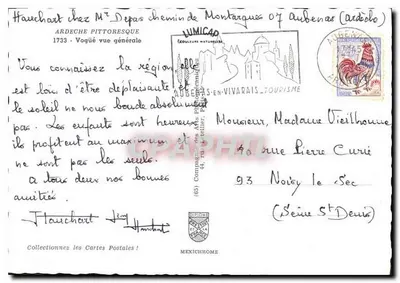 Hauchart chez Mr Depas chemin de Montargues 07 Aubenas (Ardèche)
ARDECHE PITTORESQUE
1733 - Vogüé vue générale
LUMICAP
AUBENAS-EN-VIVARAIS_TOURISME
Vous connaissez la région, elle
est loin d'être déplaisante, et
le soleil ne nous boude absolument
pas. Les enfants sont heureux
ils profitent au maximum et
ne sont pas les seuls.
à tous deux nos bonnes
amitiés.
Hauchart
Collectionnez les Cartes Postales !
MEXICHROME
Monsieur, Madame Vieilhomme
rue Pierre Curie
93 Noisy le Sec
(Seine St Denis)